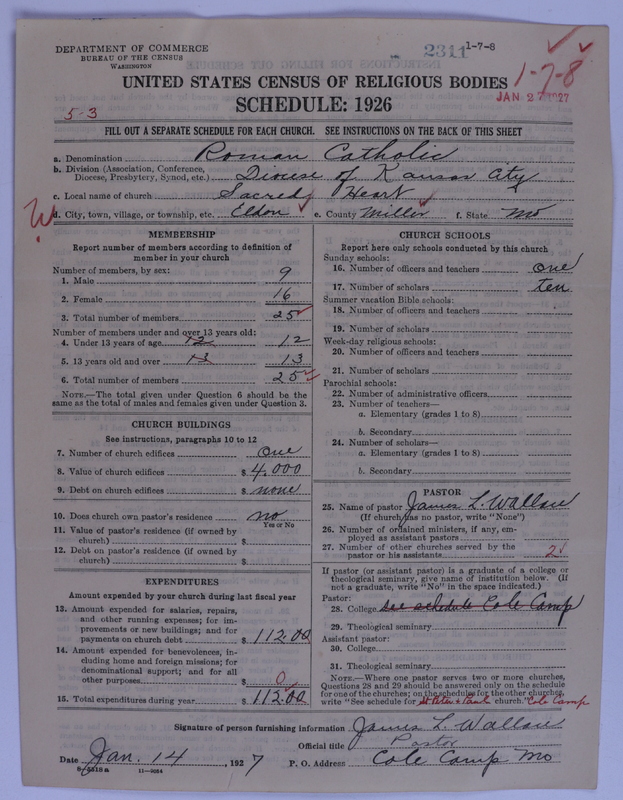 DEPARTMENT OF COMMERCE
BUREAU OF THE CENSUS
WASHINGTON
2311 1-7-8
1-7-8
UNITED STATES CENSUS OF RELIGIOUS BODIES
JAN 27 1927
SCHEDULE: 1926
5-3
FILL OUT A SEPARATE SCHEDULE FOR EACH CHURCH. SEE INSTRUCTIONS ON THE BACK OF THIS SHEET
a. Denomination Roman Catholic
b. Division (Association, Conference, Diocese, Presbytery, Synod, etc.) Diocese of Kansas City
c. Local name of church Sacred Heart
d. City, town, village, or township, etc. Eldon e. County Miller f. State Mo
MEMBERSHIP
Report number of members according to definition of
member in your church
Number of members, by sex:
1. Male 9
2. Female 16
3. Total number of members 25
Number of members under and over 13 years old:
4. Under 13 years of age 12 12
5. 13 years old and over 13 13
6. Total number of members 25
NOTE.—The total given under Question 6 should be
same as the total of males and females given under Question 3.
CHURCH BUILDINGS
See instructions, paragraphs 10 to 12
7. Number of church edifices one
8. Value of church edifices $ 4,000
9. Debt on church edifices $ none
10. Does church own pastor's residence no
Yes or No
11. Value of pastor's residence (if owned by
church) $
12. Debt on pastor's residence (if owned by
church) $
EXPENDITURES
Amount expended by your church during last fiscal year
13. Amount expended for salaries, repairs,
and other running expenses; for im-
provements or new buildings; and for
payments on church debt $ 112.00
14. Amount expended for benevolences, in-
cluding home and foreign missions; for
denominational support; and for all
other purposes $ 0
15. Total expenditures during year $ 112.00
CHURCH SCHOOLS
Report here only schools conducted by this church
Sunday schools:
16. Number of officers and teachers one
17. Number of scholars ten
Summer vacation Bible schools:
18. Number of officers and teachers
19. Number of scholars
Week-day religious schools:
20. Number of officers and teachers
21. Number of scholars
Parochial schools:
22. Number of administrative officers
23. Number of teachers—
a. Elementary (grades 1 to 8)
b. Secondary
24. Number of scholars—
a. Elementary (grades 1 to 8)
b. Secondary
PASTOR
25. Name of pastor James L. Wallace
(If church has no pastor, write "None")
26. Number of ordained ministers, if any, em-
ployed as assistant pastors
27. Number of other churches served by the
pastor or his assistants 2
If pastor (or assistant pastor) is a graduate of a college or
theological seminary, give name of institution below. (If
not a graduate, write "No" in the space indicated.)
Pastor:
28. College see schedule Cole Camp
29. Theological seminary
Assistant pastor:
30. College
31. Theological seminary
NOTE.—Where one pastor serves two or more churches,
Questions 28 and 29 should be answered only on the schedule
for one of the churches; on the schedules for the other churches,
write "See schedule for St Peter & Paul church." Cole Camp
Signature of person furnishing information James L. Wallace
Official title Pastor
Date Jan. 14, 1927 P. O. Address Cole Camp Mo
8-5518a 11-9064